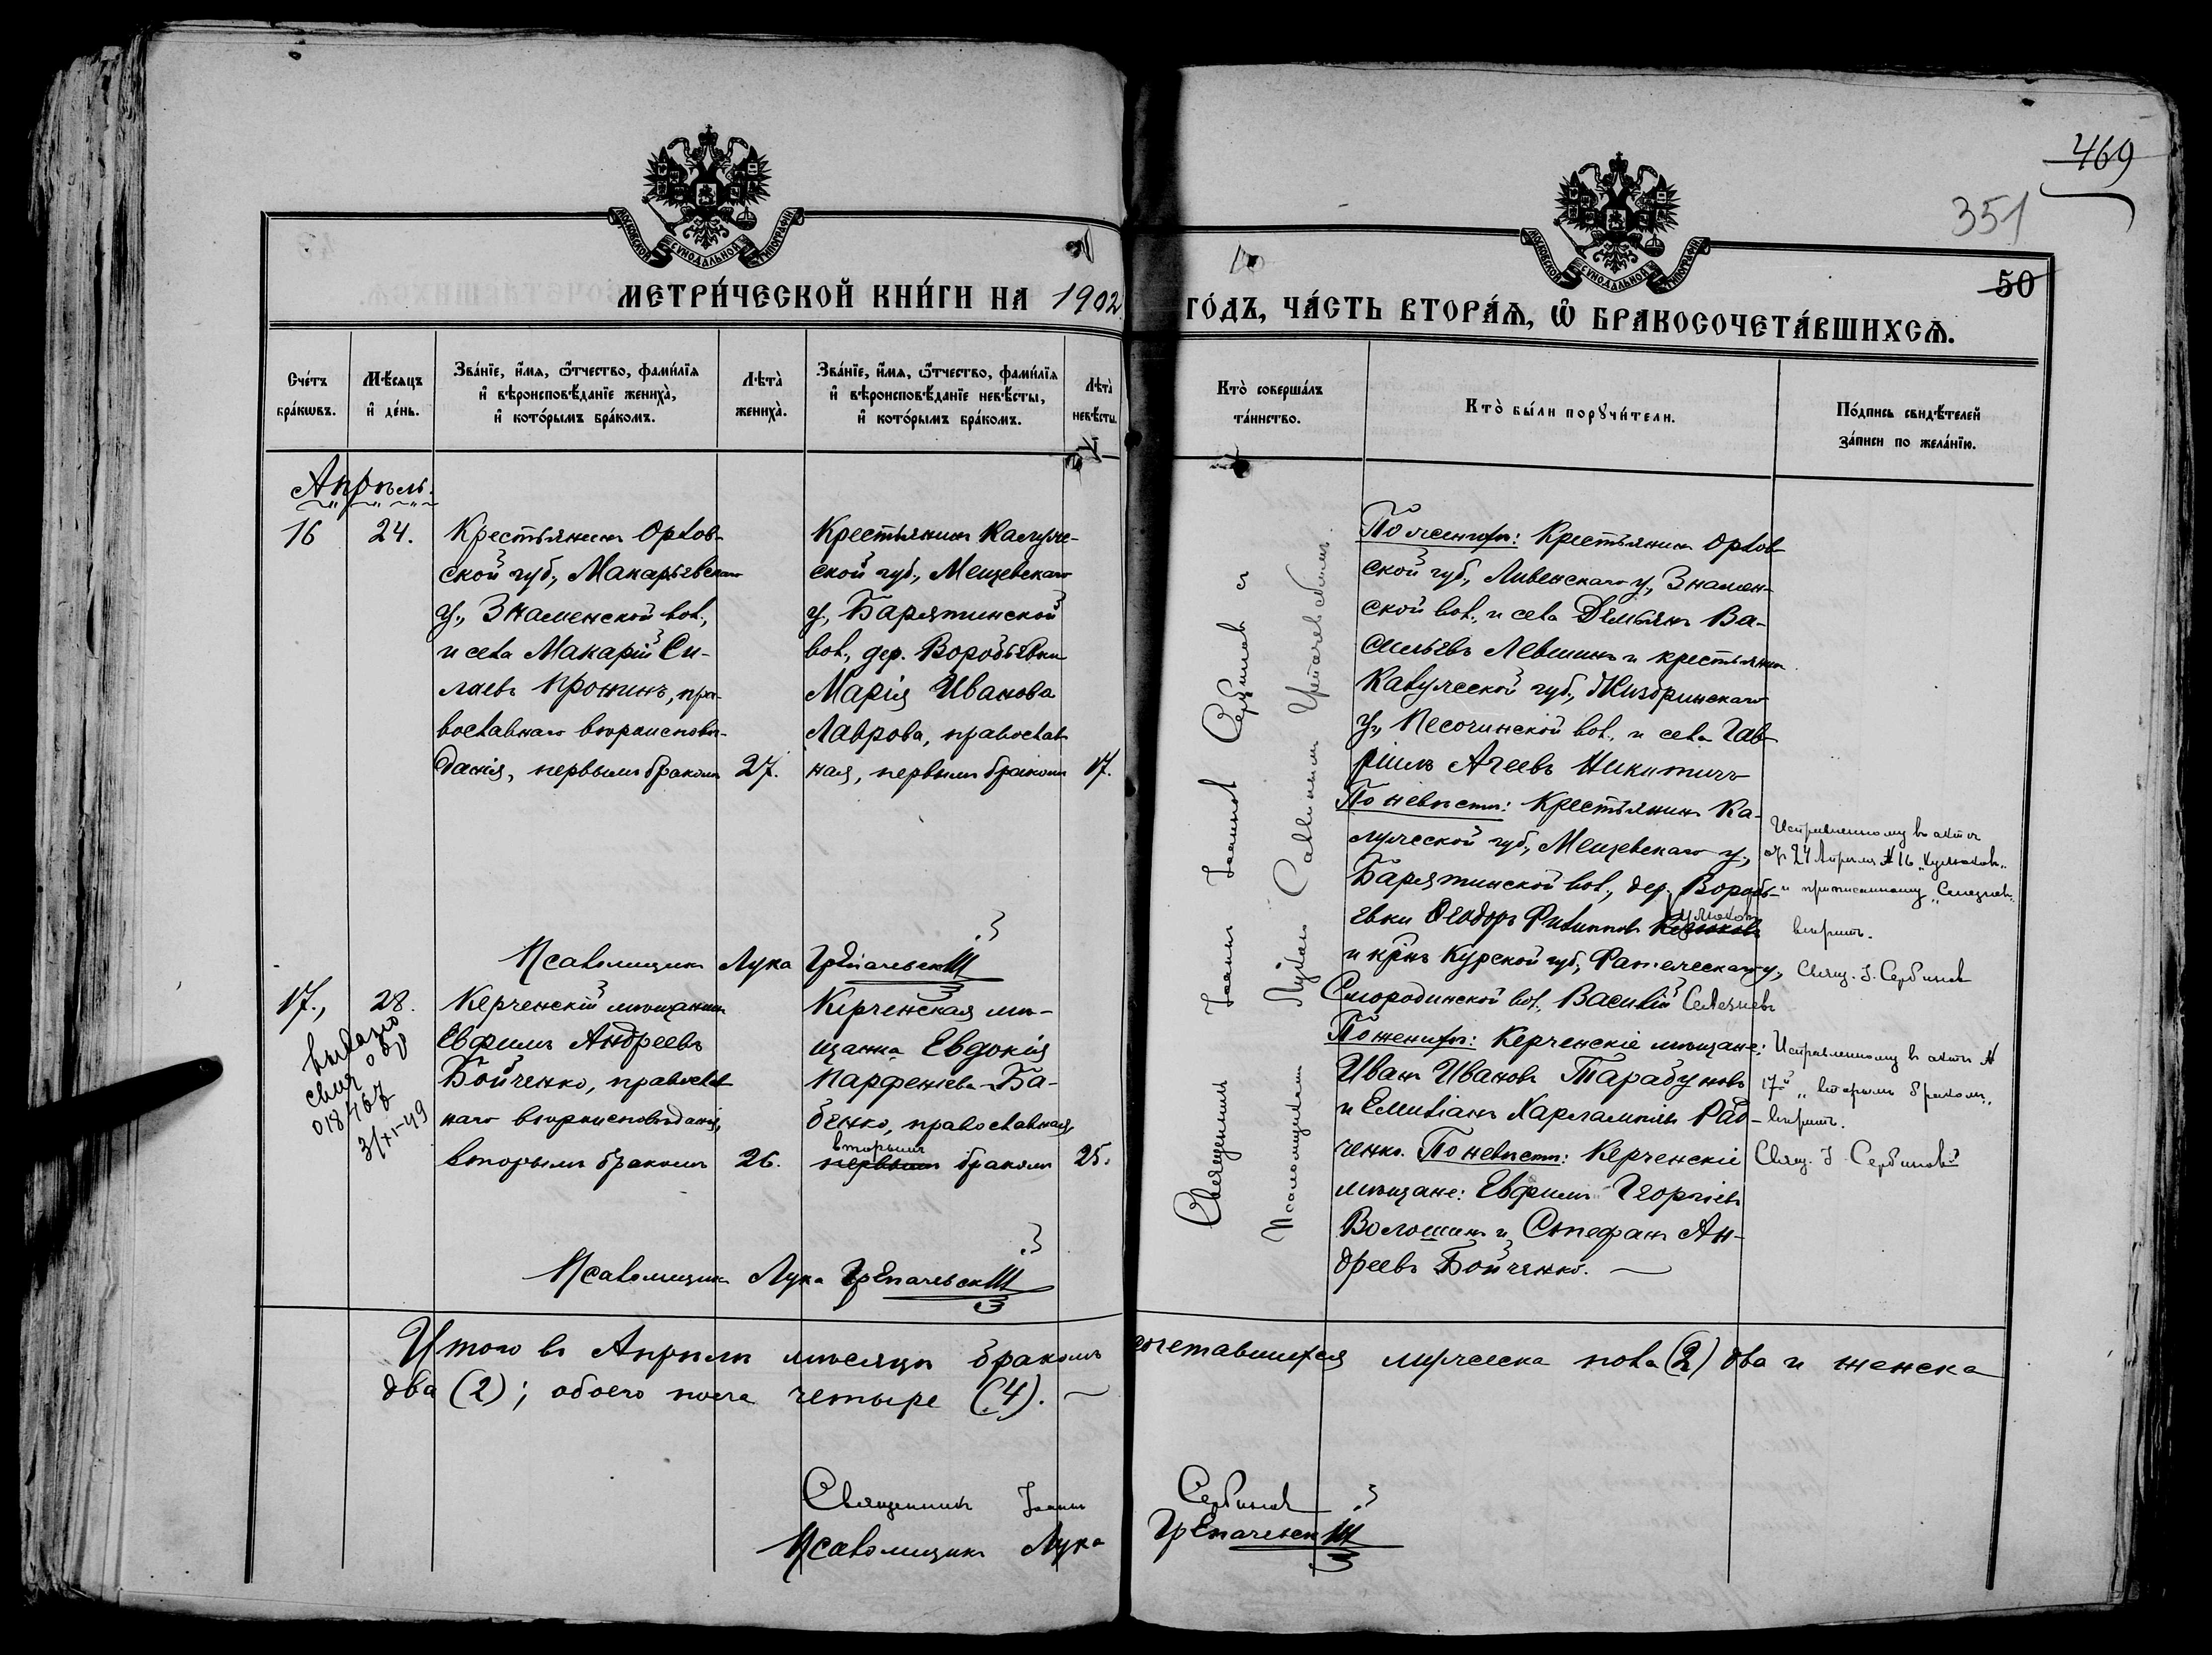 469
351
50
МОСКОВСКОЙ СѴНОДАЛЬНОЙ ТИПОГРАФІИ
МОСКОВСКОЙ СѴНОДАЛЬНОЙ ТИПОГРАФІИ
МЕТРИ́ЧЕСКОЙ КНИ́ГИ НА 1902
ГО́ДЪ, ЧА́СТЬ ВТОРА́Ѧ, Ѽ БРАКОСОЧЕТА́ВШИХСѦ.
Сче́тъ бра́кѡвъ.
Мѣ́сяцъ и҆ де́нь.
Зва́нїе, и҆́мя, ѻ҆́тчество, фами́лїя
и҆ вѣроисповѣ́данїе жениха̀,
и҆ кото́рымъ бра́комъ.
Лѣта̀ жениха̀.
Зва́нїе, и҆́мя, ѻ҆́тчество, фами́лїя
и҆ вѣроисповѣ́данїе невѣ́сты,
и҆ кото́рымъ бра́комъ.
Лѣта̀ невѣ́сты.
Кто̀ соверша́лъ та́инство.
Кто̀ бы́ли порꙋчи́тели.
По́дпись свидѣ́телей за́писи по жела́нїю.
Апрѣль.
16
24.
Крестьянинъ Орлов-
ской губ., Макарьевскаго
у., Знаменской вол.,
и села Макарій Си-
лаевъ Пронинъ, пра-
вославнаго вѣроисповѣ-
данія, первымъ бракомъ
27.
Крестьянинъ Калуж-
ской губ., Мещевскаго
у., Барятинской
вол., дер. Воробьевки
Марія Иванова
Лаврова, православ-
ная, первымъ бракомъ
17.
Псаломщикъ Лука
Священникъ Іоаннъ Іоанновъ Сербиновъ съ
Псаломщикомъ Лукою
По женихѣ: Крестьянинъ Орлов-
ской губ., Ливенскаго у., Знамен-
ской вол., и села Демьянъ Ва-
сильевъ Левшинъ и крестьянинъ
Калужской губ., Жиздринскаго
у., Песочинской вол., и села Гав-
ріилъ Агеевъ Никитичъ
По невѣстѣ: Крестьянинъ Ка-
лужской губ., Мещевскаго у.,
Барятинской вол., дер. Воробь-
евки Ѳеодоръ Филипповъ
и крнъ Курской губ., Фатежскаго у.,
Смородинской вол. Василій Селезневъ
Исправленному въ актѣ
отъ 24 Апрѣля № 16
и приписанному „Селезневъ“
вѣрить.
Свящ. І. Сербиновъ
17.,
28.
выдано
31/XI-49
Керченскій мѣщанинъ
Евфимъ Андреевъ
Бойченко, православ-
наго вѣроисповѣданія,
вторымъ бракомъ
26.
Керченская мѣ-
щанка Евдокія
Парфеніева Ба-
бенко, православная,
вторымъ
первымъ бракомъ
25.
Псаломщикъ Лука
По женихѣ: Керченскіе мѣщане:
Иванъ Ивановъ Тарабуновъ
и Емиліанъ Харлампіевъ Рад-
ченко. По невѣстѣ: Керченскіе
мѣщане: Евфимъ Георгіевъ
Волошинъ и Стефанъ Ан-
дреевъ Бойченко.
Исправленному въ актѣ №
17й „вторымъ бракомъ“
вѣрить.
Свящ. І. Сербиновъ
Итого въ Апрѣлѣ мѣсяцѣ бракомъ сочетавшихся мужеска пола (2) два и женска
два (2); обоего пола четыре (4).
Священникъ Іоаннъ Сербиновъ
Псаломщикъ Лука